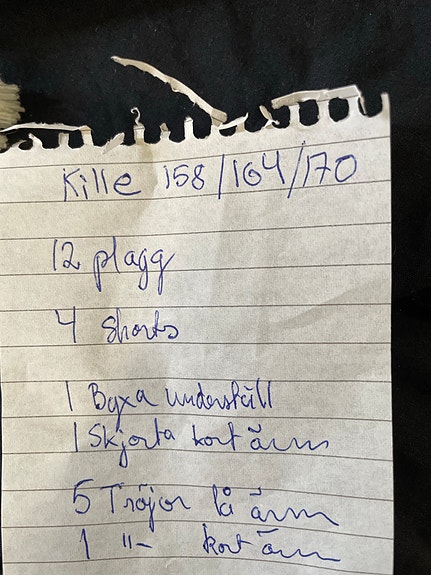 Kille 158/164/170
12 plagg
4 shorts
1 Byxa underställ
1 Skjorta kort ärm
5 Tröjor lå ärm
1 -"- kort ärm